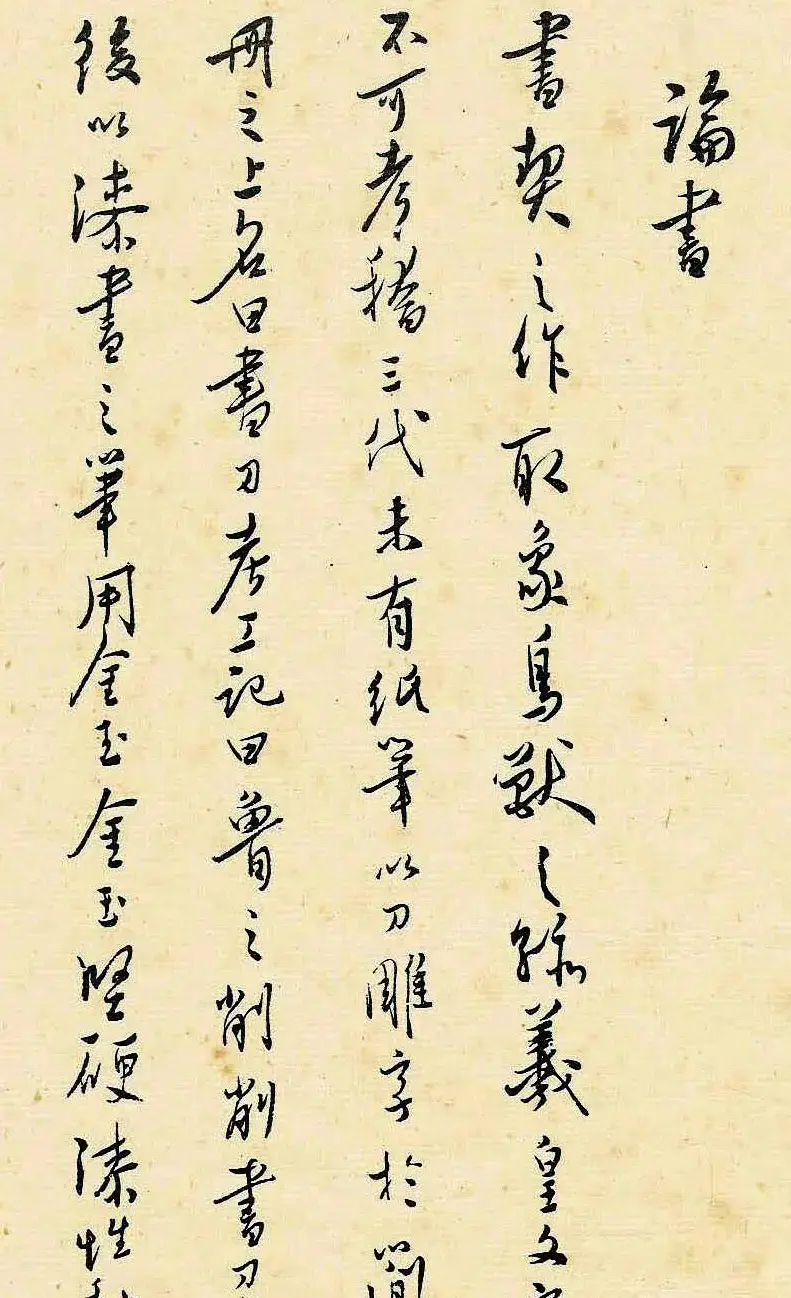 論書
書契之作取象鳥獸之跡羲皇文
不可考稽三代未有紙筆以刀雕字於簡
冊之上名曰書刀考工記曰魯之削削書刀
後以漆書之筆用金玉金玉堅硬漆性